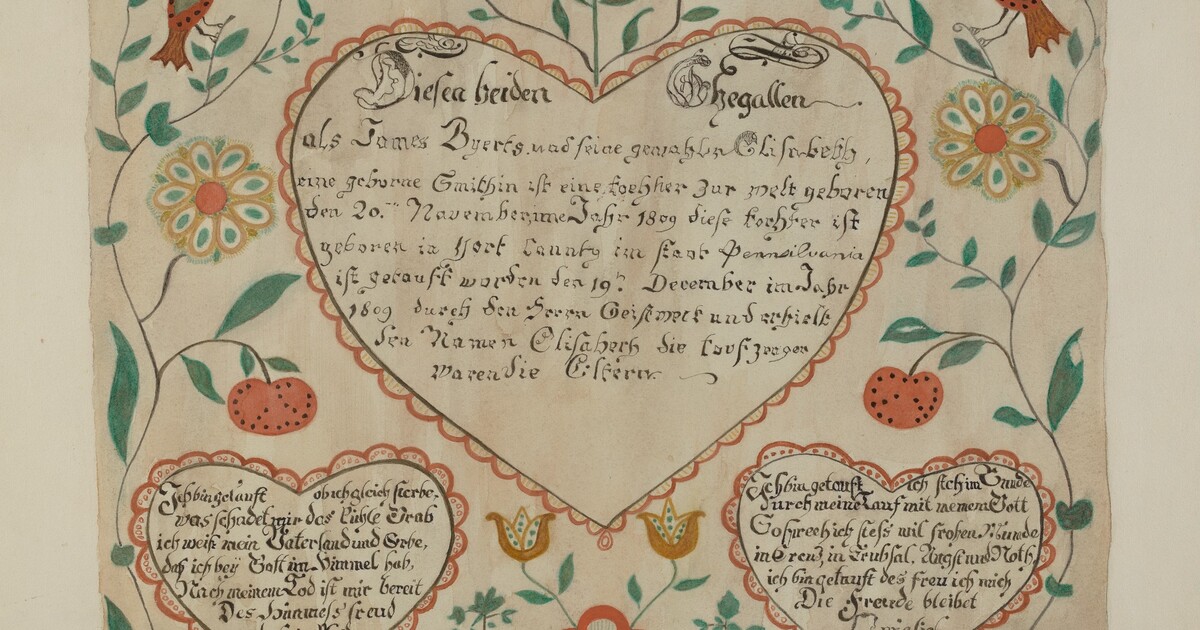 Diesen beiden Ehegatten
als James Byerts und seine gemahlin Elisabeth,
eine geborne Smithin ist eine tochter zur welt geboren
den 20.ten November im Jahr 1809 diese tochter ist
geboren in York County im staat Pennsilvania
ist getauft worden den 19t December im Jahr
1809 durch den Herrn Geistweit und erhielt
den Namen Elisabeth die taufzeugen
waren die Eltern
Ich bin getauft ob ich gleich sterbe
was schadet mir das kühle Grab
ich weis mein Vaterland und Erbe,
das ich bey Gott im Himmel hab,
Nach meinem Tod ist mir bereit
Des Himmels freud
Ich bin getauft ich steh im Bunde
Durch meine Tauf mit meinem Gott
So sprech ich stets mit frohem Munde
in Creuz, in Trübsal, Angst und Noth,
ich bin getauft des freu ich mich
Die Freude bleibet